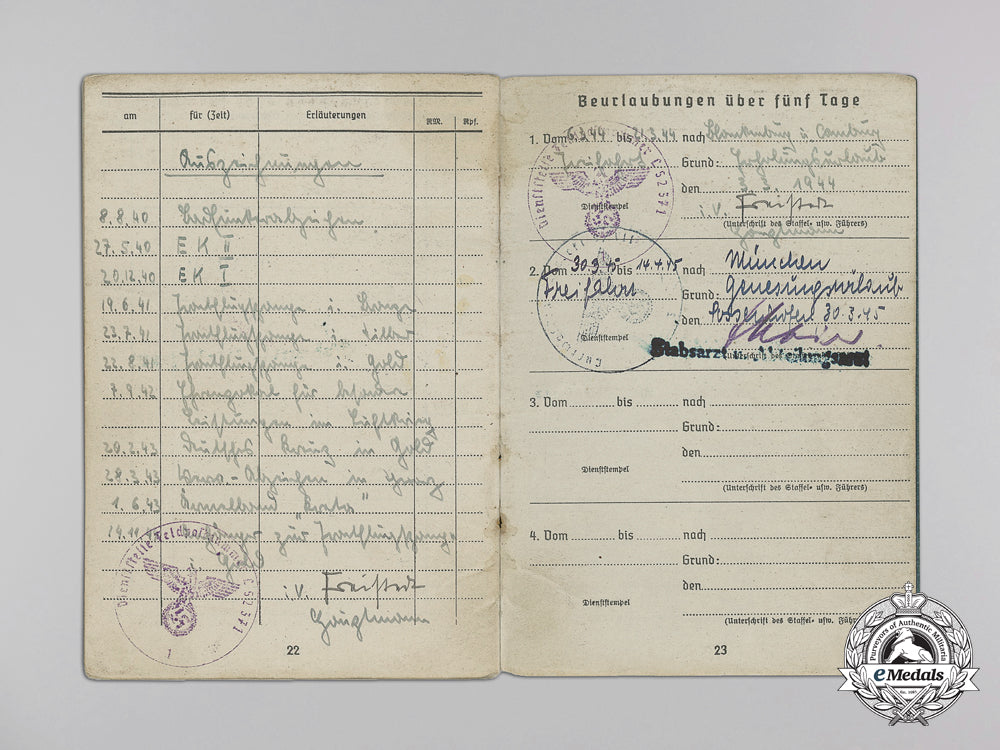 am für (Zeit) Erläuterungen RM. Rpf.
Auszeichnungen
8.8.40
27.5.40 E K II
20.12.40 E K I
19.6.41 Frontflugspange i. Bronze
23.7.41 Frontflugspange i. Silber
22.8.41 Frontflugspange i. Gold
7.9.42 Ehrenpokal für besondere
Leistungen im Luftkrieg
20.2.43 Deutsches Kreuz in Gold
28.2.43 Abzeichen in
1.6.43 Ärmelband "Kreta"
Anhänger zur Frontflugspange
Gold
i.V. Freistedt
Hauptmann
Dienststelle Feldpostnummer L 52371
22
Beurlaubungen über fünf Tage
1. Vom 6.3.44 bis 21.3.44 nach Blankenburg u. Camburg
Freifahrt Grund: Erholungsurlaub
den 1944
Dienststempel i.V. Freistedt
(Unterschrift des Staffel- usw. Führers)
Hauptmann
Dienststelle L 52371
2. Vom 30.3.45 bis 14.4.45 nach München
Freifahrt Grund: Genesungsurlaub
den 30.3.45
Dienststempel
Stabsarzt
3. Vom bis nach
Grund:
den
Dienststempel
(Unterschrift des Staffel- usw. Führers)
4. Vom bis nach
Grund:
den
Dienststempel
(Unterschrift des Staffel- usw. Füh
23
Purveyors of Authentic Militaria
eMedals